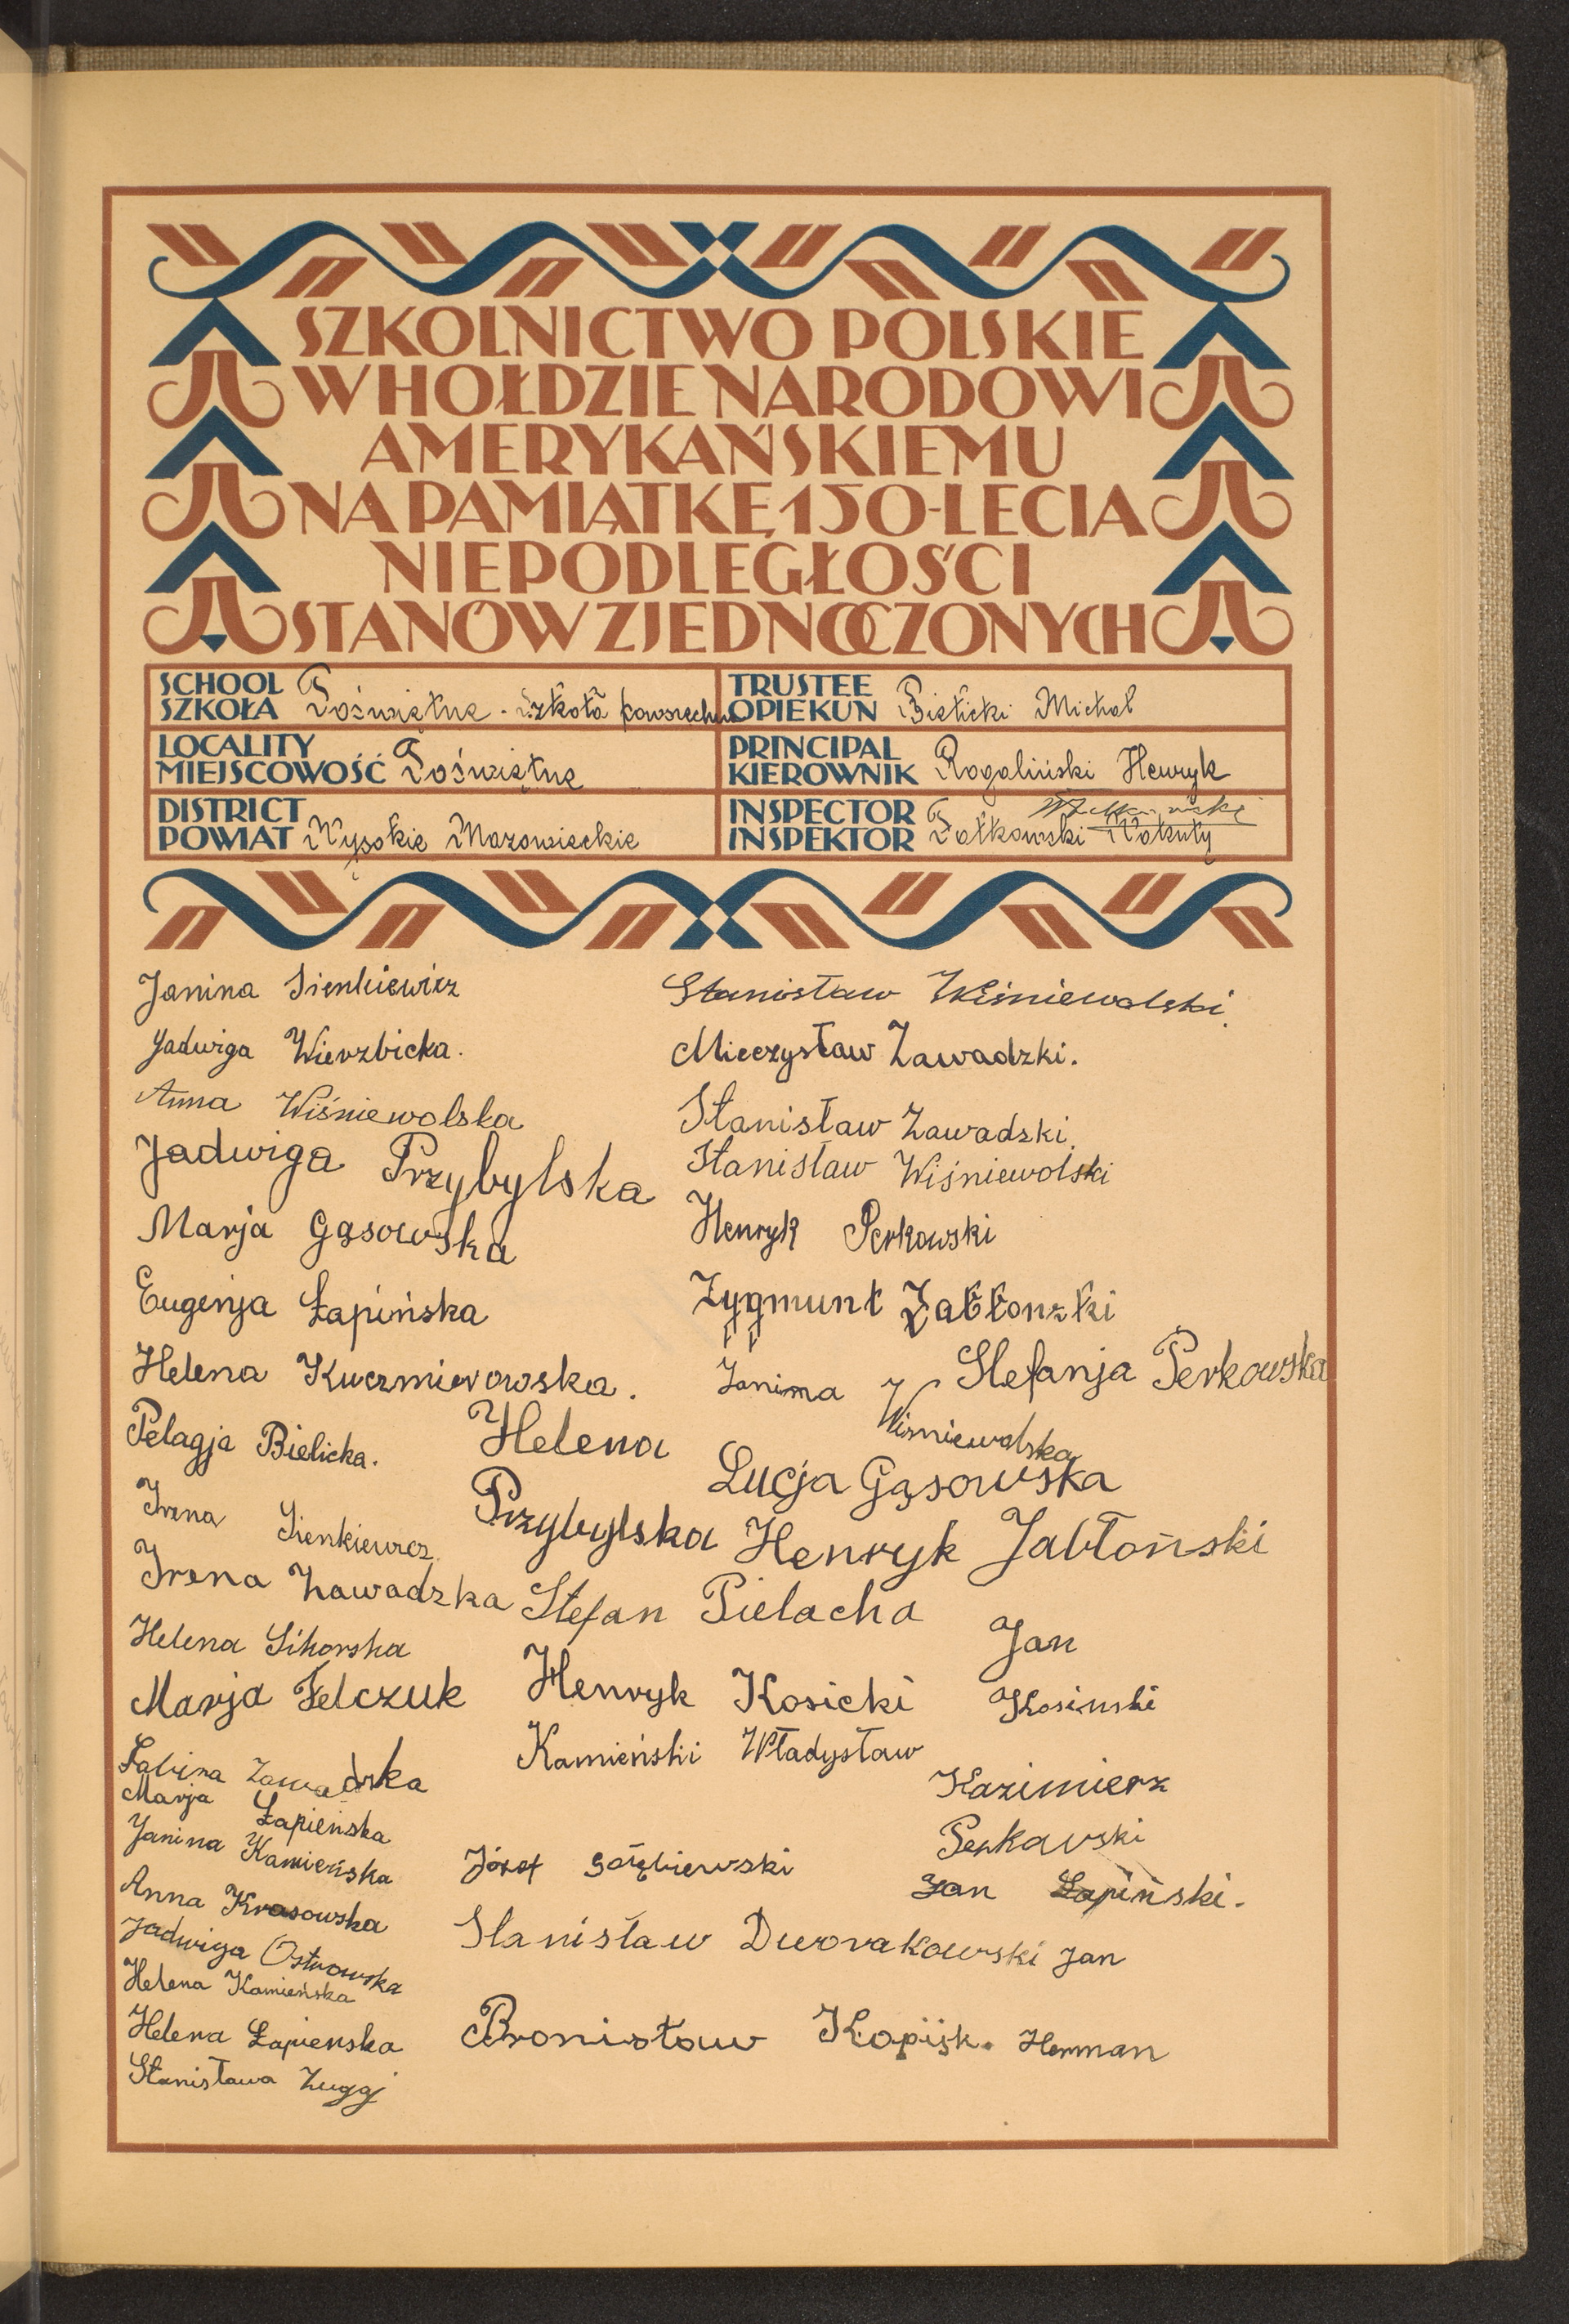 SZKOLNICTWO POLSKIE
W HOŁDZIE NARODOWI
AMERYKAŃSKIEMU
NA PAMIĄTKĘ 150-LECIA
NIEPODLEGŁOŚCI
STANÓW ZJEDNOCZONYCH
SCHOOL
SZKOŁA Poświętne - Szkoła powszechna
TRUSTEE
OPIEKUN Bielicki Michał
LOCALITY
MIEJSCOWOŚĆ Poświętne
PRINCIPAL
KIEROWNIK Rogaliński Henryk
DISTRICT
POWIAT Wysokie Mazowieckie
INSPECTOR
INSPEKTOR Fałkowski
Janina Sienkiewicz
Jadwiga Wierzbicka.
Anna Wiśniewolska
Jadwiga Przybylska
Marja Gąsowska
Eugenja Łapińska
Helena Kuczmierowska.
Pelagja Bielicka.
Irena Sienkiewicz
Irena Zawadzka
Helena Sikorska
Marja Felczuk
Sabina Zawadzka
Marja Łapieńska
Janina Kamieńska
Anna Krasowska
Jadwiga Ostrowska
Helena Kamieńska
Helena Łapienska
Stanisława Zugaj
Stanisław Wiśniewolski.
Mieczysław Zawadzki.
Stanisław Zawadzki.
Stanisław Wiśniewolski
Henryk Perkowski
Zygmunt Jabłonzki
Janina Wiśniewolska
Stefanja Perkowska
Helena
Przybylska
Lucja Gąsowska
Henryk Jabłoński
Stefan Pielacha
Jan
Kosinski
Henryk Kosicki
Kamieński Władysław
Kazimierz
Perkavski
Józef Gołębiewski
Jan Łapiński.
Stanisław Dworakowski
Jan
Herman
Bronisław Kopijk.